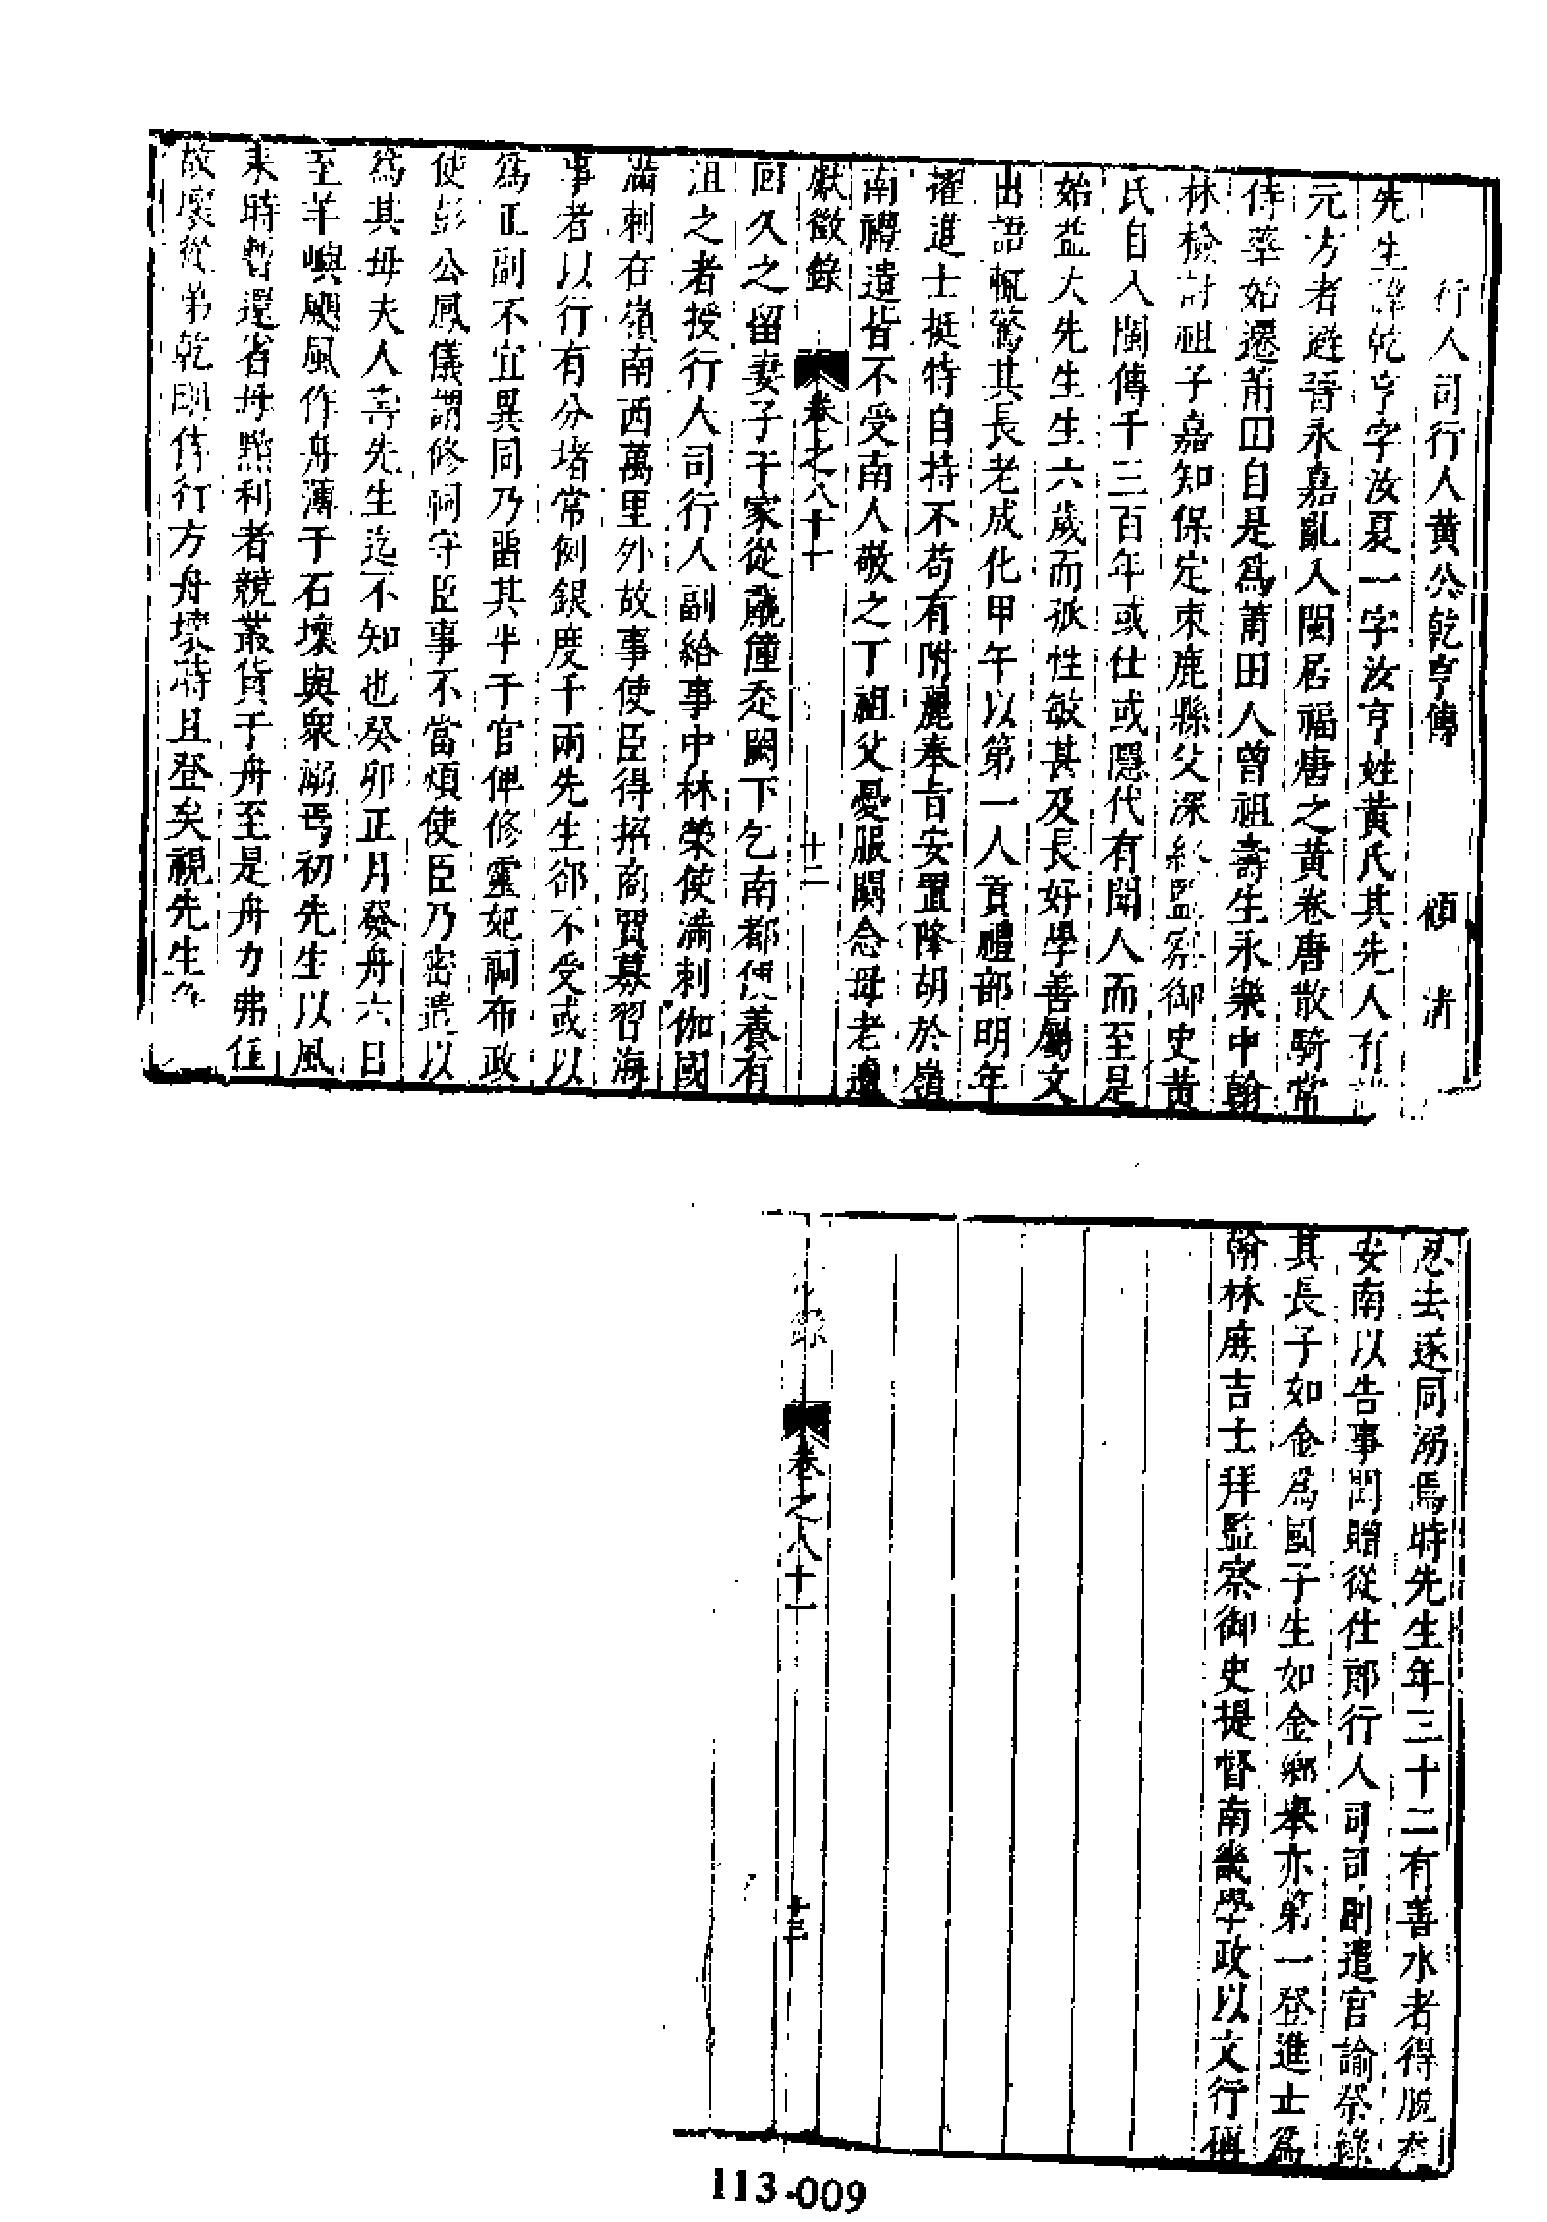 行人司行人黃公乾亨傳 顧清
先生諱乾亨字汝夏一字汝亨姓黃氏其先人有
元方者避晉永嘉亂入閩居福唐之黃巷唐散騎常
侍華始遷莆田自是爲莆田人曾祖壽生永樂中翰
林檢討祖子嘉知保定束鹿縣父深 監察御史黃
氏自入閩傳千三百年或仕或隱代有聞人而至是
始益大先生生六歲而孤性敏甚及長好學善屬文
出語輒驚其長老成化甲午以第一人貢禮部明年
擢進士挺特自持不苟有附麗奉旨安置降胡於嶺
南禮遺皆不受南人敬之丁祖父憂服闋念母老遠
獻徵錄 卷之八十一 十二
回久之留妻子于家從羸僮赴闕下乞南都便養有
沮之者授行人司行人副給事中林榮使滿剌伽國
滿剌在嶺南西萬里外故事使臣得招商買募習海
事者以行有分堵常例銀度千兩先生卻不受或以
爲正副不宜異同乃留其半于官俾修靈妃祠布政
使彭公鳳儀謂修祠守臣事不當煩使臣乃密遣以
爲其母夫人壽先生迄不知也癸卯正月發舟六日
至羊嶼颶風作舟薄于石壞與衆溺焉初先生以風
未時暫還省母黠利者競叢貨于舟至是舟力弗任
故壞從弟乾剛侍行方舟壞時且登矣視先生不
忍去遂同溺焉時先生年三十二有善水者得脫走
安南以告事聞贈從仕郎行人司司副遣官諭祭錄
其長子如金爲國子生如金鄉舉亦第一登進士爲
翰林庶吉士拜監察御史提督南畿學政以文行稱
錄 卷之八十一 十三
113-009